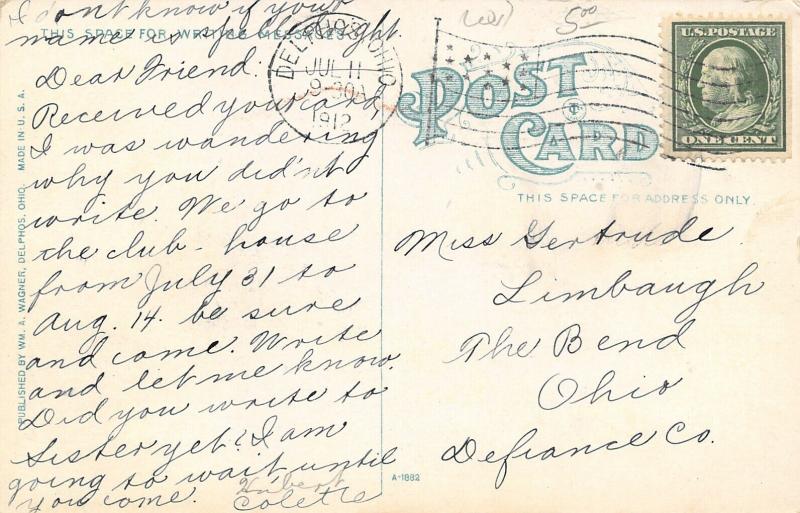 I don't know if your
name is spelled right
THIS SPACE FOR WRITING MESSAGES
Dear Friend:
Received your card
I was wandering
why you did'nt
write. We go to
the club-house
from July 31 to
Aug. 14. be sure
and come. Write
and let me know.
Did you write to
Sister yet? I am
going to wait until
you come.
Hubert
Colette
PUBLISHED BY WM. A. WAGNER, DELPHOS, OHIO. MADE IN U.S.A.
DELPHOS, OHIO
JUL 11
9 30 A
1912
5.00
U.S. POSTAGE
ONE CENT
POST
CARD
THIS SPACE FOR ADDRESS ONLY.
Miss Gertrude
Limbaugh
The Bend
Ohio
Defiance Co.
A-1882